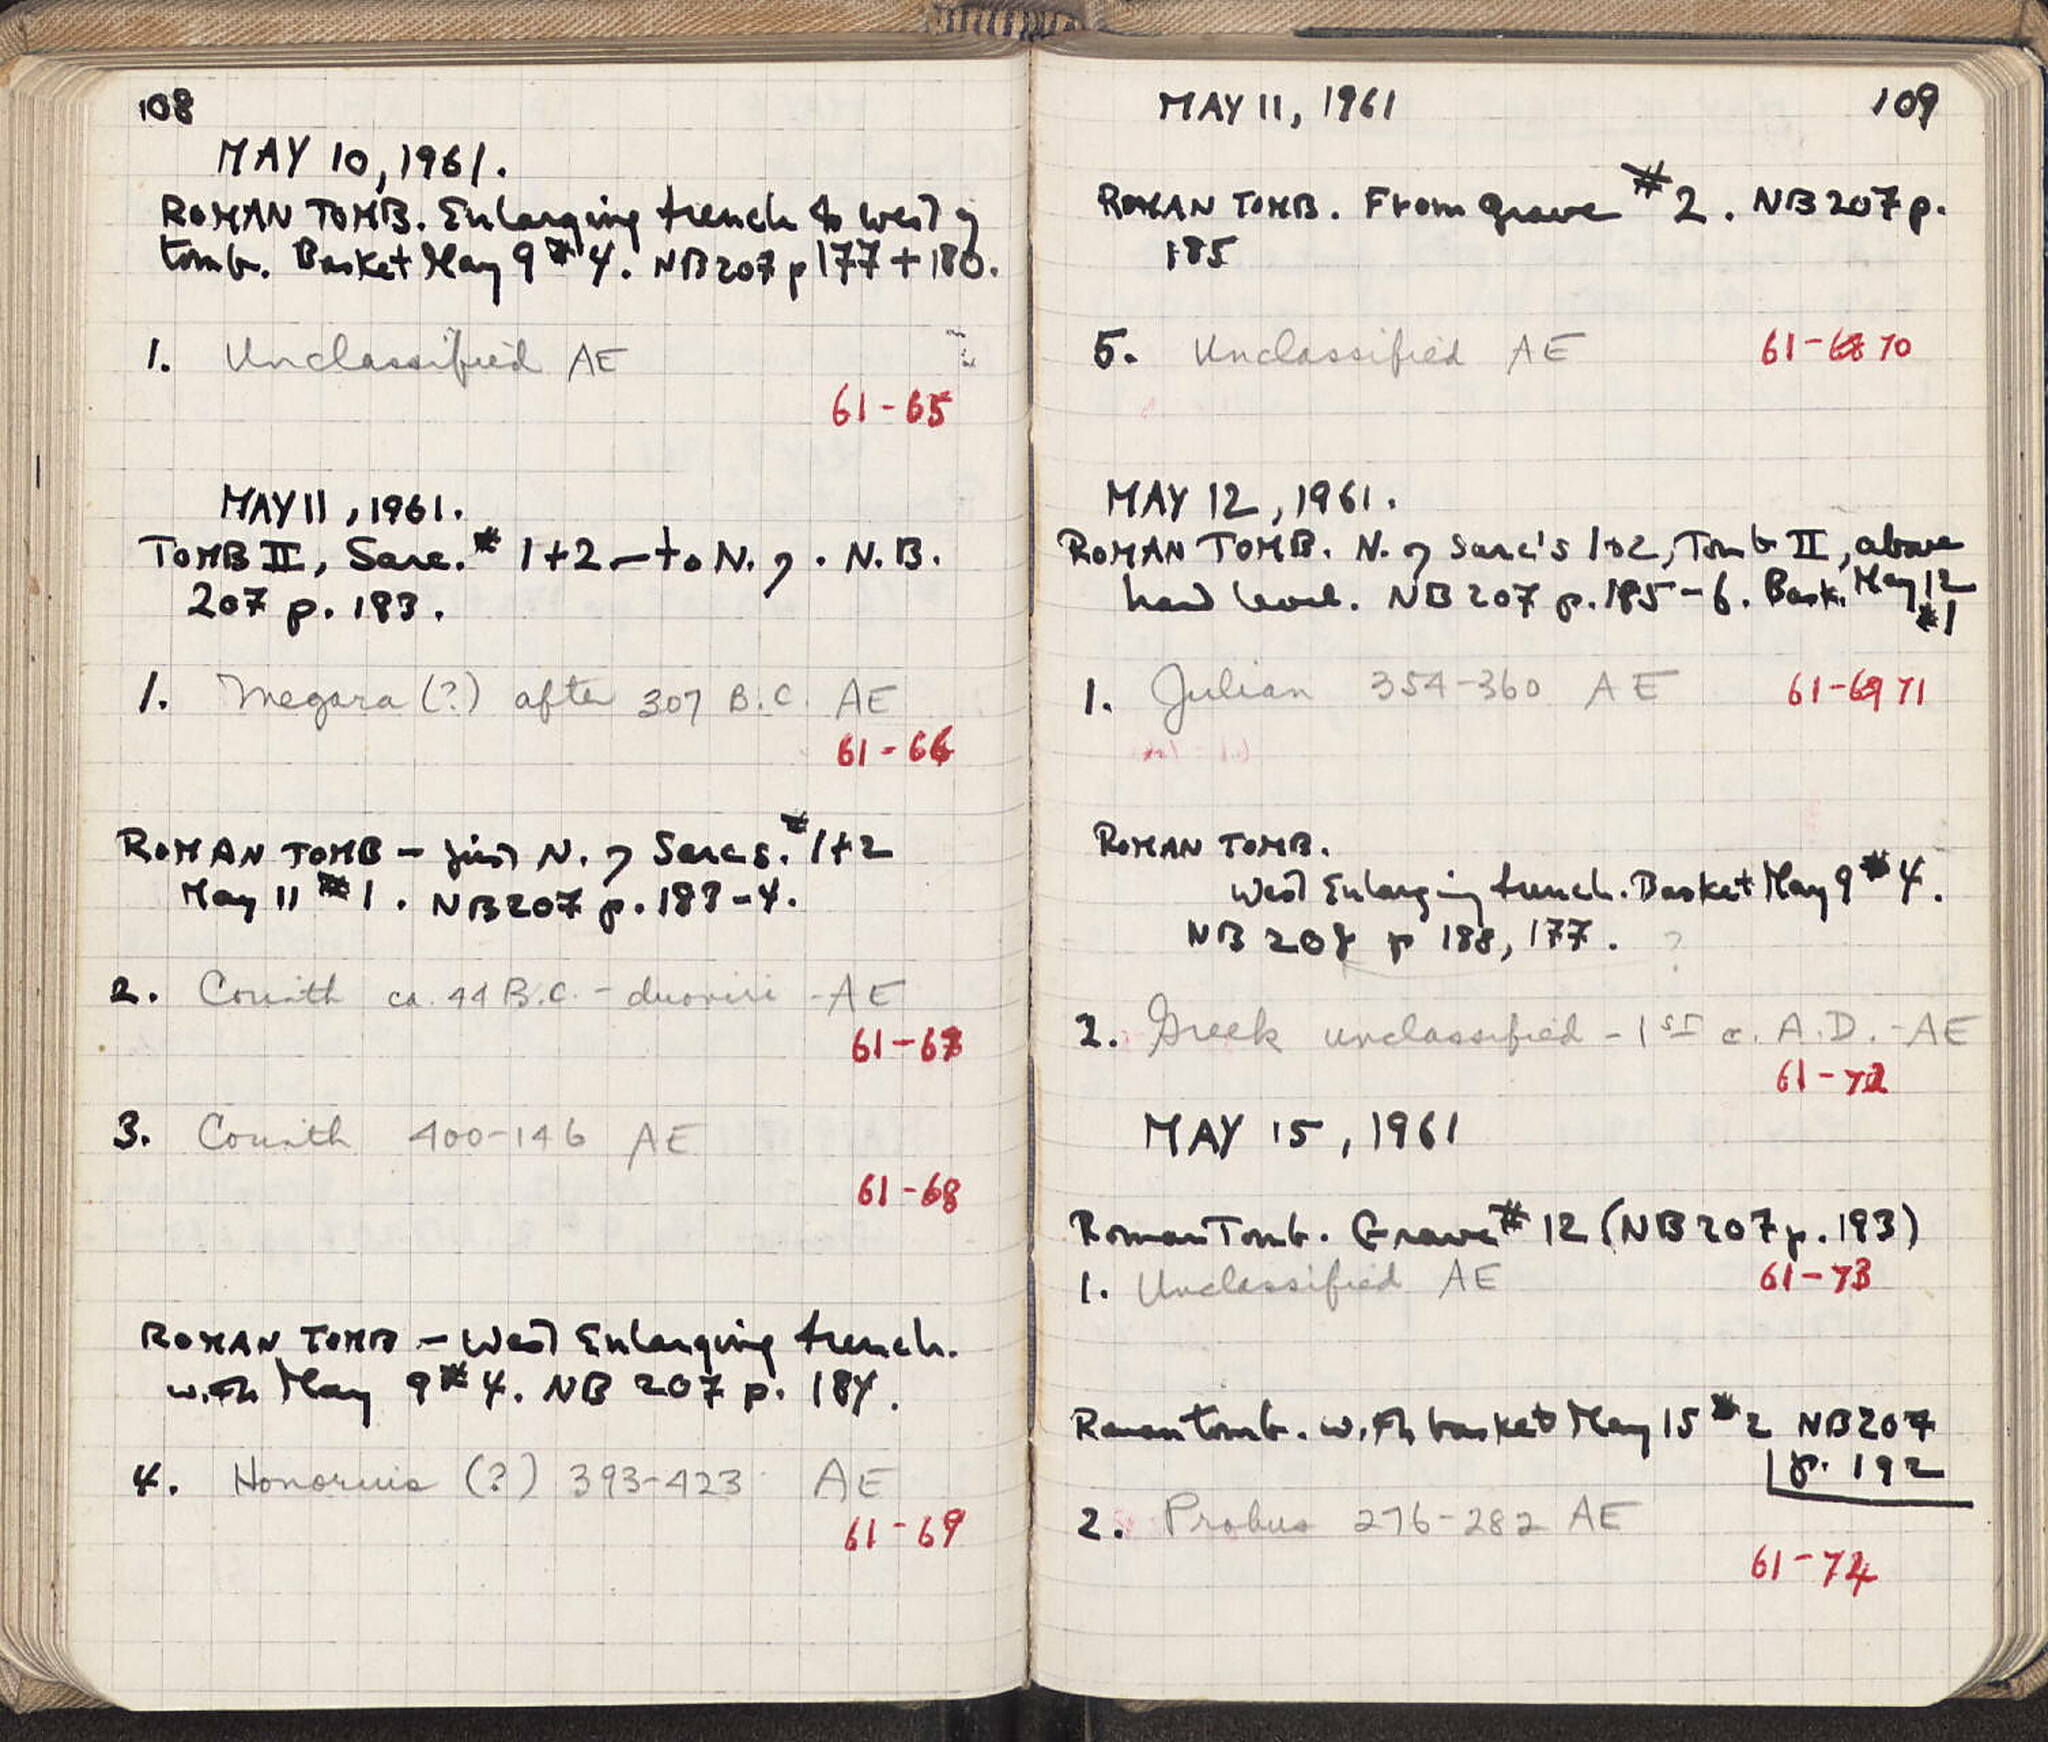 108
MAY 10, 1961.
ROMAN TOMB. Enlarging trench to west of
tomb. Basket May 9 #4. NB 207 p 177 + 180.
1. Unclassified AE
61-65
MAY 11, 1961.
TOMB II, Sarc. # 1+2 - to N. of. N.B.
207 p. 183.
1. Megara (?) after 307 B.C. AE
61-66
ROMAN TOMB - just N. of Sarcs. # 1+2
May 11 #1. NB 207 p. 183-4.
2. Corinth ca. 44 B.C. - duoviri - AE
61-67
3. Corinth 400-146 AE
61-68
ROMAN TOMB - West Enlarging trench.
with May 9 #4. NB 207 p. 184.
4. Honorius (?) 393-423 AE
61-69
MAY 11, 1961 109
ROMAN TOMB. From grave #2. NB 207 p.
185
5. Unclassified AE 61-68 70
MAY 12, 1961.
ROMAN TOMB. N. of Sarc's 1+2, Tomb II, above
hard level. NB 207 p. 185-6. Bask. May 12
#1
1. Julian 354-360 AE 61-69 71
ROMAN TOMB.
West Enlarging trench. Basket May 9 #4.
NB 208 p 188, 177. ?
2. Greek unclassified - 1st c. A.D. - AE
61-72
MAY 15, 1961
Roman Tomb. Grave #12 (NB 207 p. 193)
1. Unclassified AE 61-73
Roman tomb. with basket May 15 #2 NB 207
p. 192
2. Probus 276-282 AE
61-74